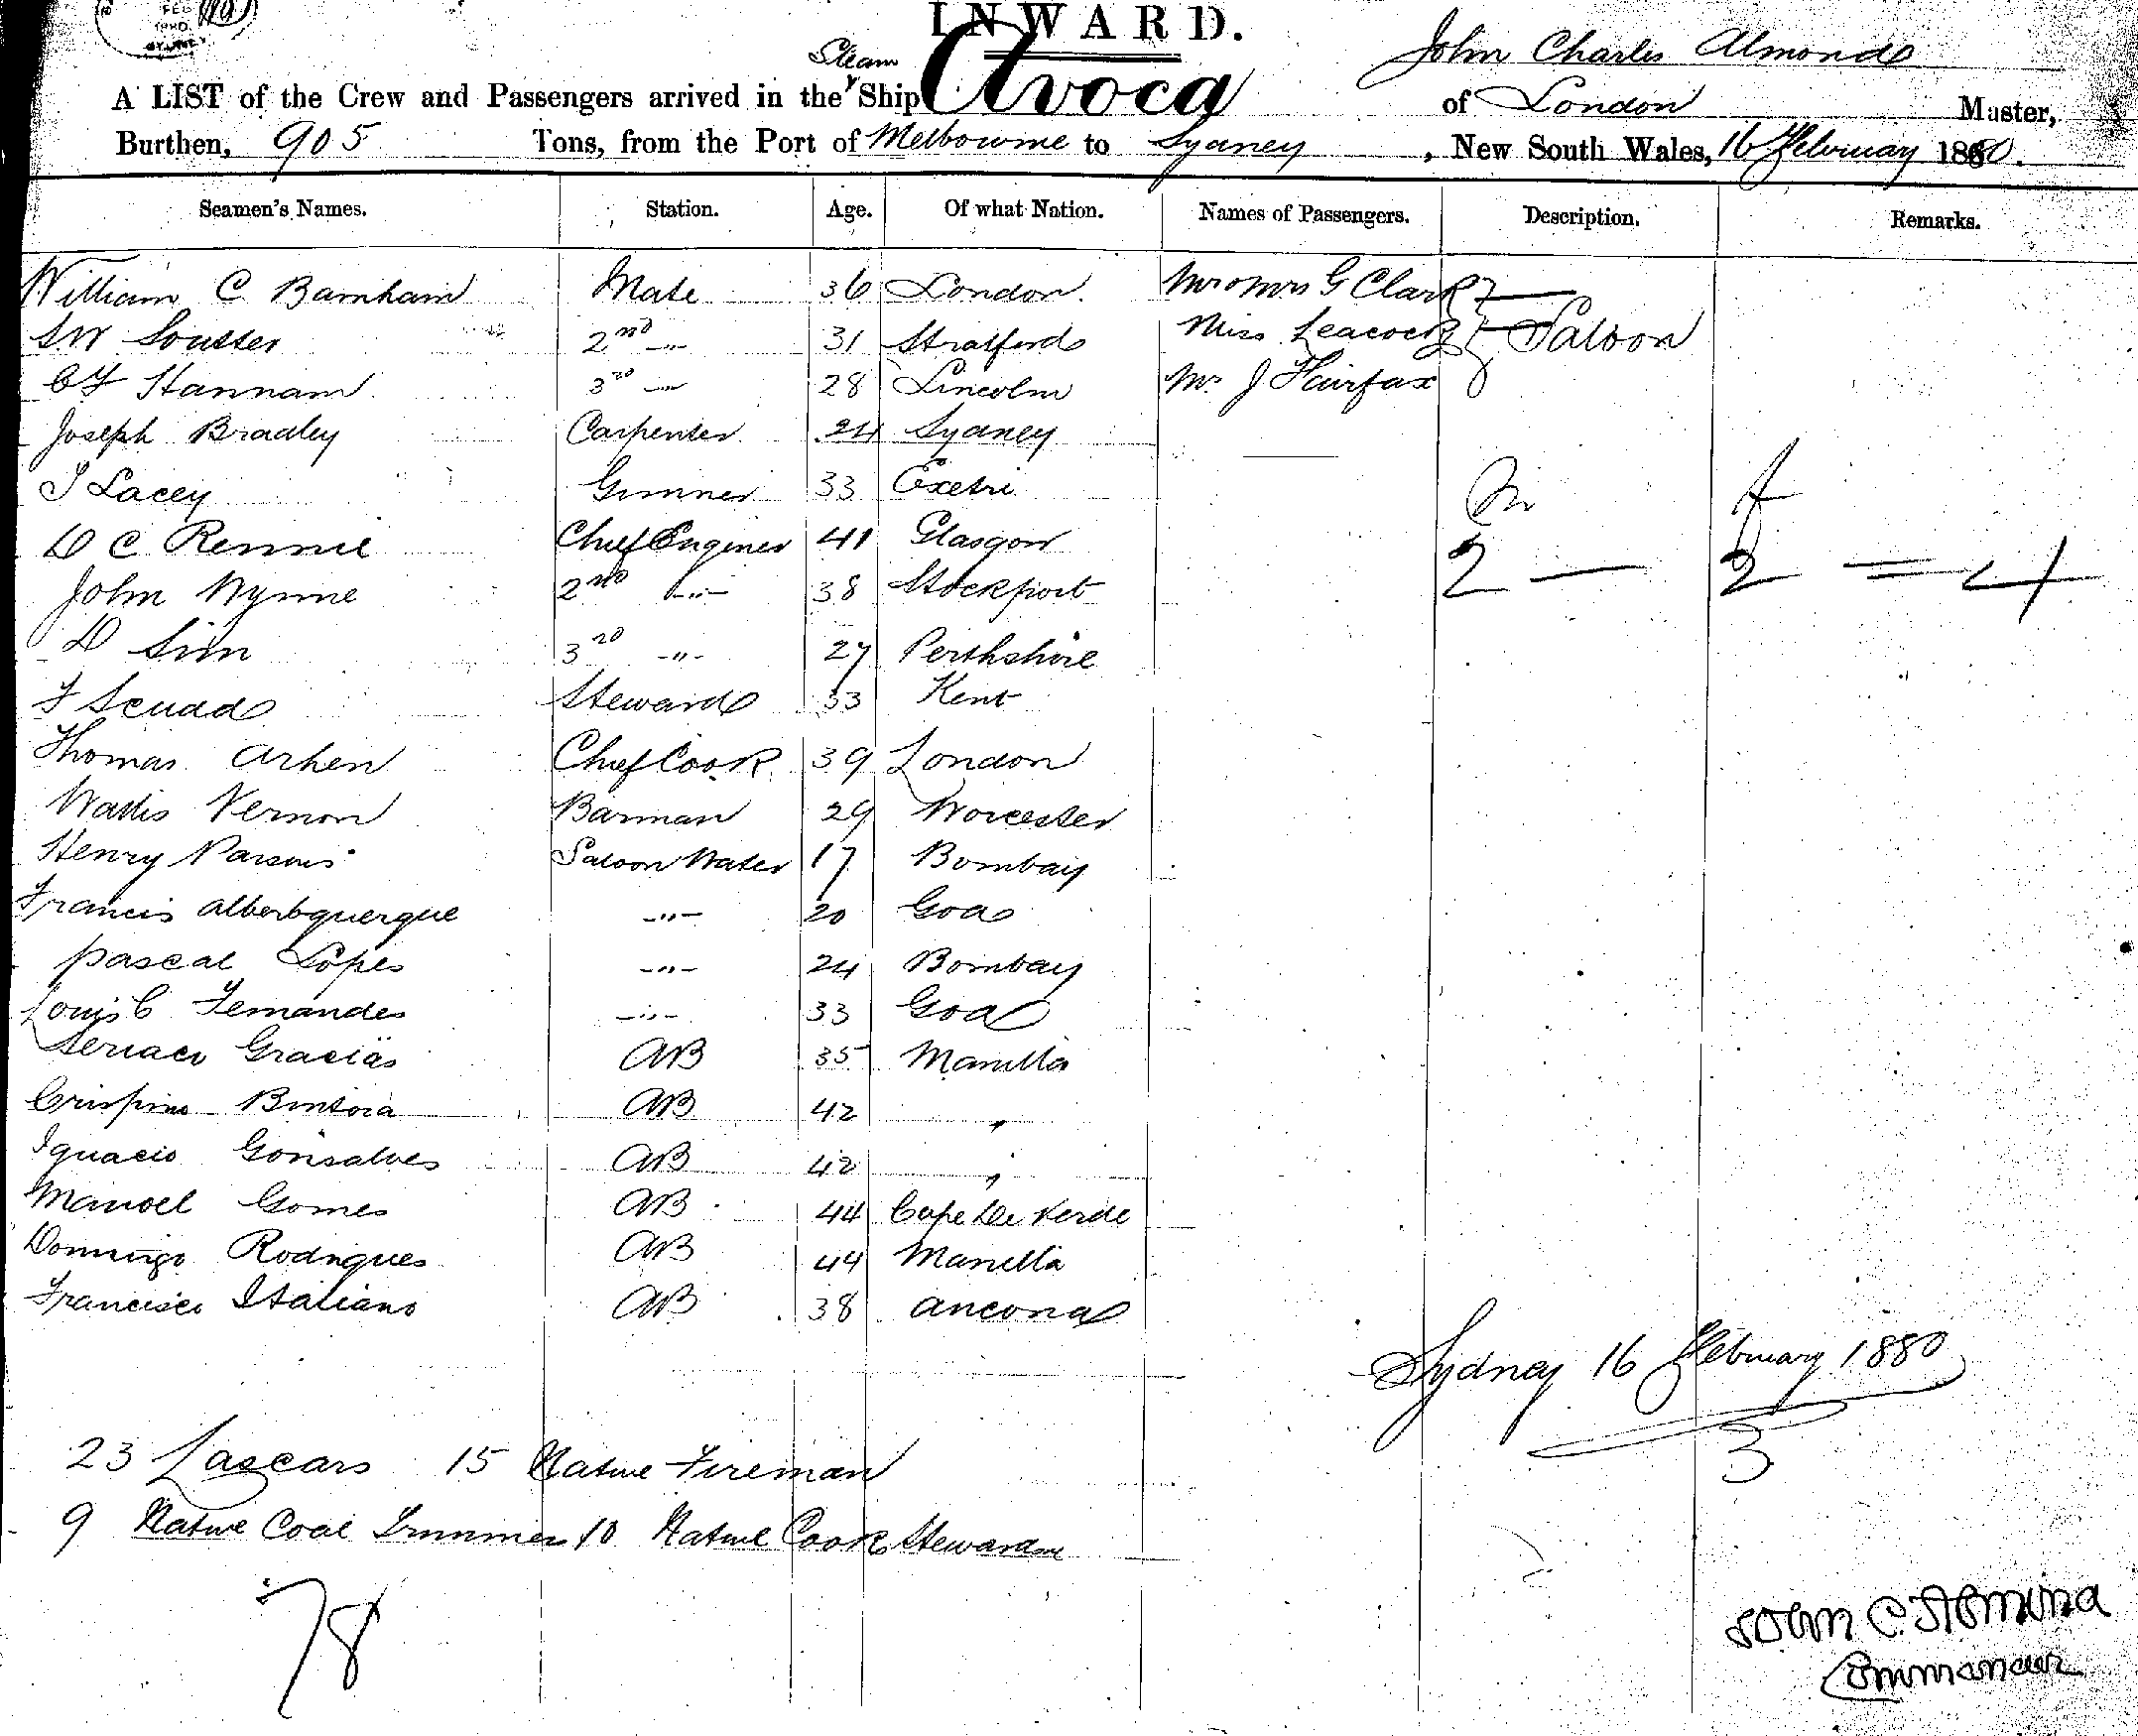 FEB
1880
SYDNEY
INWARD.
John Charles Almond
Steam
A LIST of the Crew and Passengers arrived in the Ship Avoca of London Master,
Burthen, 905 Tons, from the Port of Melbourne to Sydney, New South Wales, 16 February 1880.
Seamen's Names. Station. Age. Of what Nation. Names of Passengers. Description. Remarks.
William C Barnham Mate 36 London Mr & Mrs G Clark
S W Soutter 2nd -"- 31 Stratford Miss Leacock Saloon
C F Hannam 3rd -"- 28 Lincoln Mr J Fairfax
Joseph Bradley Carpenter 24 Sydney
T Lacey Gunner 33 Exetre m f
D C Rennie Chief Engineer 41 Glasgow 2 — 2 = 4
John Wynne 2nd -"- 38 Stockport
D Sim 3rd -"- 27 Perthshire
F Scudd Steward 33 Kent
Thomas Arhen Chief Cook 39 London
Wallis Vernon Barman 29 Worcester
Henry Parsons Saloon Waiter 17 Bombay
Francis Alberbquerque -"- 20 Goa
Pascal Lopes -"- 24 Bombay
Louis C Fernandes -"- 33 Goa
Seriaco Gracias AB 35 Manilla
Crispino AB 42 "
Ignacio Gonsalves AB 42 "
Manoel Gomes AB 44 Cape De Verde
Domingo Rodrigues AB 44 Manilla
Francisco Italiano AB 38 Ancona
Sydney 16 February 1880
3
23 Lascars 15 Native Fireman
9 Native Coal Trimmer 10 Native Cook Steward
78
John C. Almond
Commander